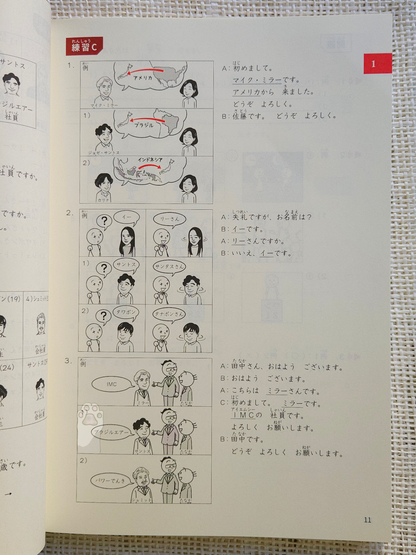 サントス
ジルエアー
社員
社員ですか。
ですか。
(19)
(24)
歳です。
→
練習C
1
1.
例
アメリカ
マイク・ミラー
1)
ブラジル
ジョゼ・サントス
2)
インドネシア
カリナ
A：初めまして。
マイク・ミラーです。
アメリカから 来ました。
どうぞ よろしく。
B：佐藤です。 どうぞ よろしく。
2.
例
?
イー
リーさん
1)
?
サントス
サンダスさん
2)
?
タワポン
タナポンさん
A：失礼ですが、お名前は？
B：イーです。
A：リーさんですか。
B：いいえ、イーです。
3.
例
IMC
1)
ブラジルエアー
2)
パワーでんき
A：田中さん、おはよう ございます。
B：おはよう ございます。
A：こちらは ミラーさんです。
C：初めまして。 ミラーです。
IMCの 社員です。
よろしく お願いします。
B：田中です。
どうぞ よろしく お願いします。
11